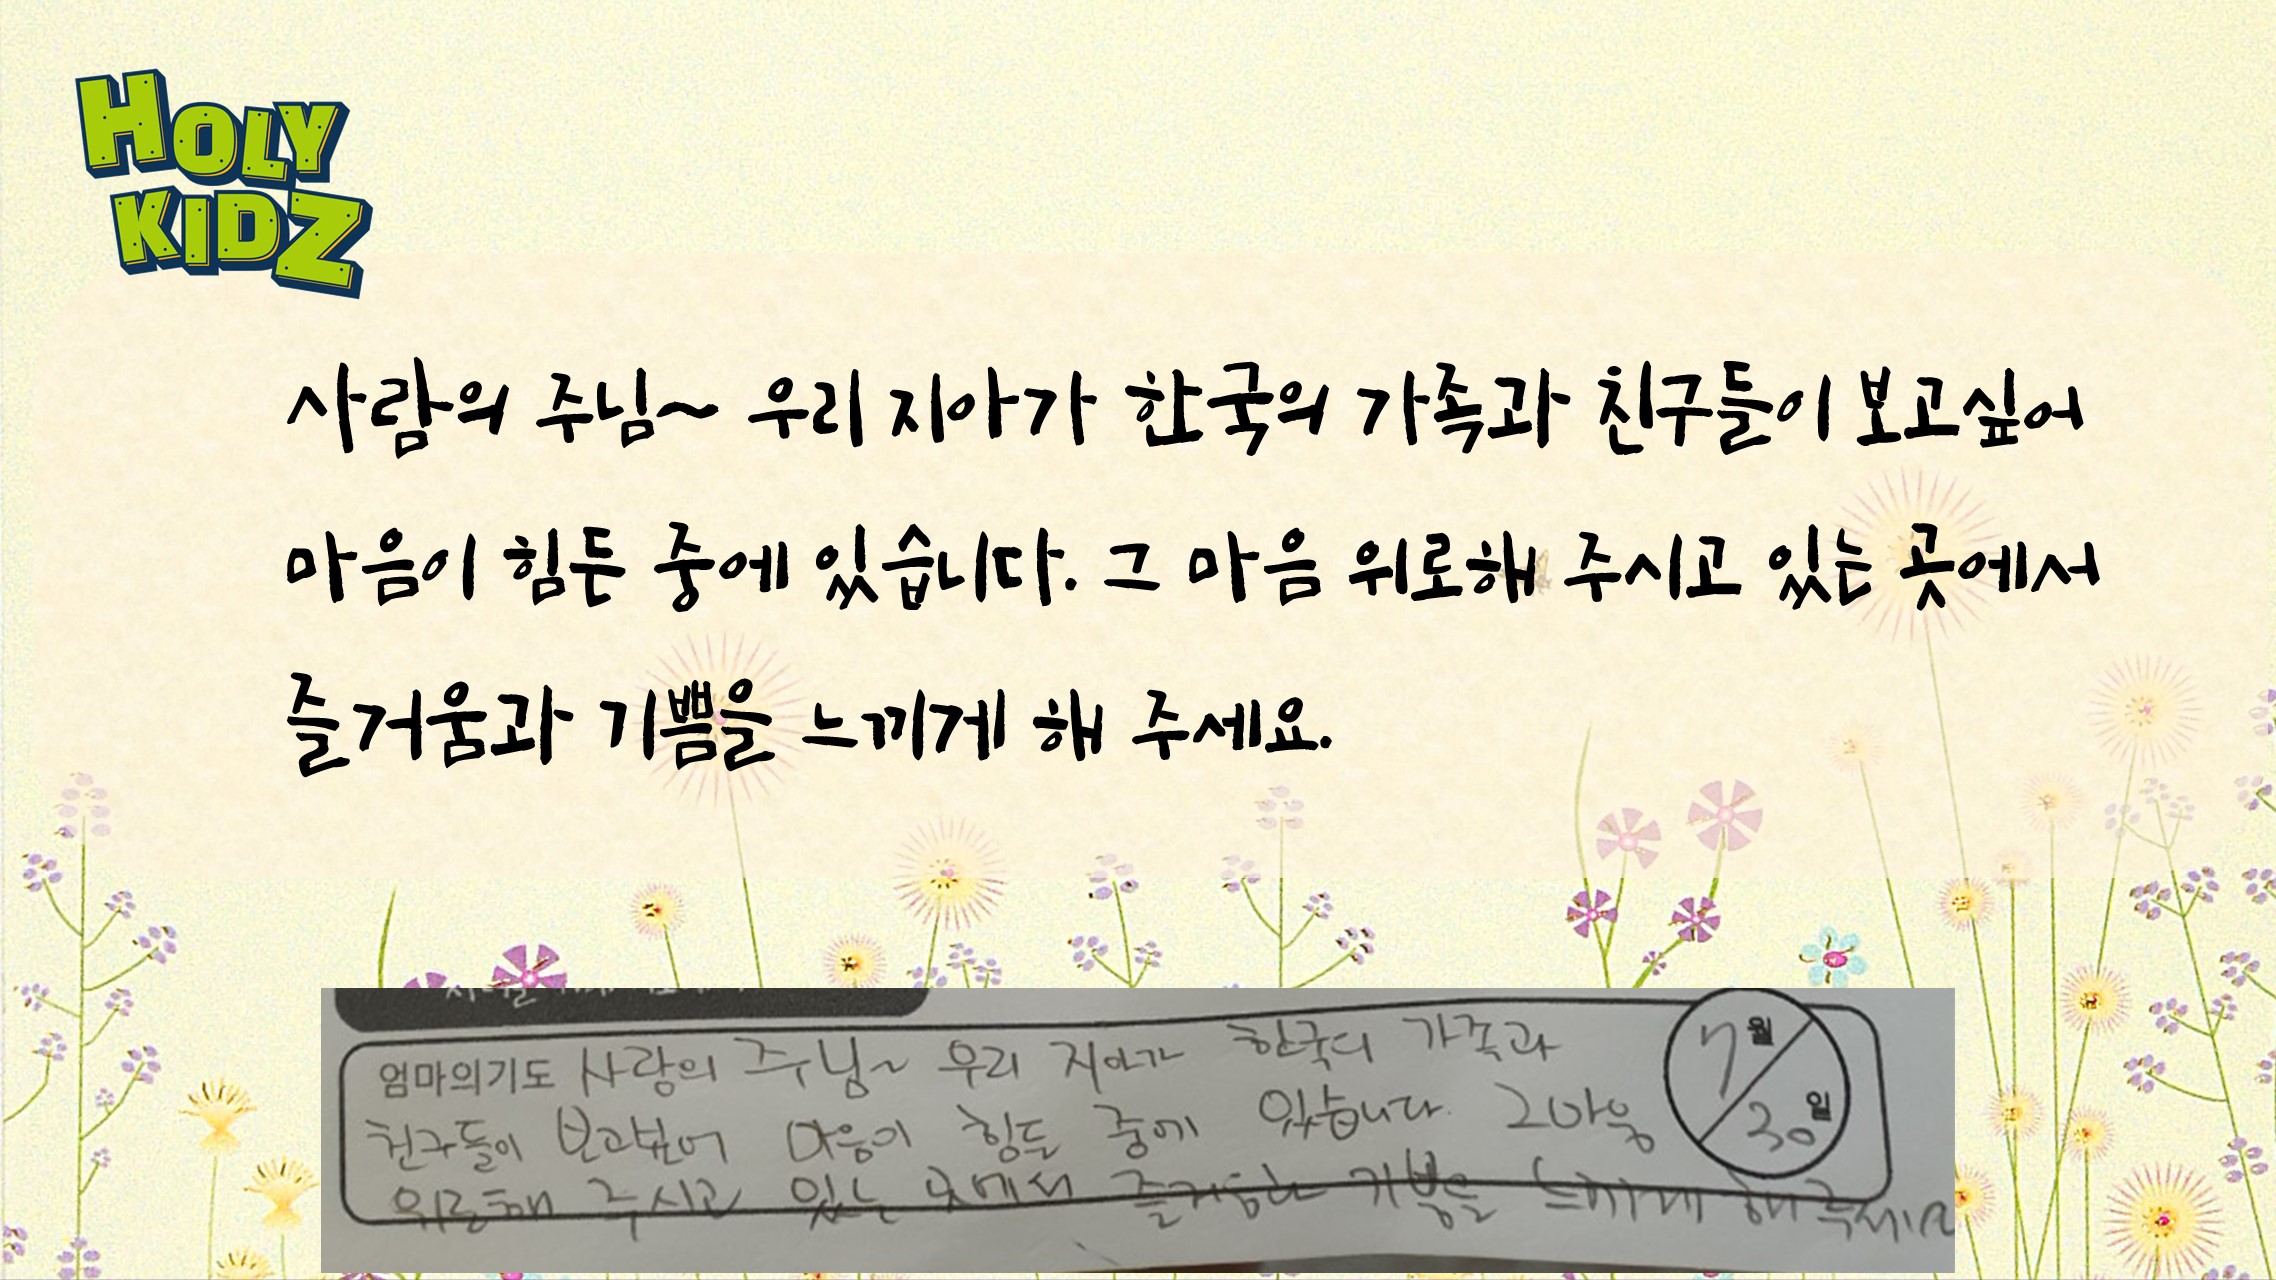 HOLY
KIDZ
사람의 주님~ 우리 지아가 한국의 가족과 친구들이 보고싶어
마음이 힘든 중에 있습니다. 그 마음 위로해 주시고 있는 곳에서
즐거움과 기쁨을 느끼게 해 주세요.
엄마의기도 사랑의 주님~ 우리 지아가 한국의 가족과
7월
친구들이 보고싶어 마음이 힘든 중에 있습니다. 그마음
30일
위로해 주시고 있는 곳에서 즐거움과 기쁨을 느끼게 해주세요